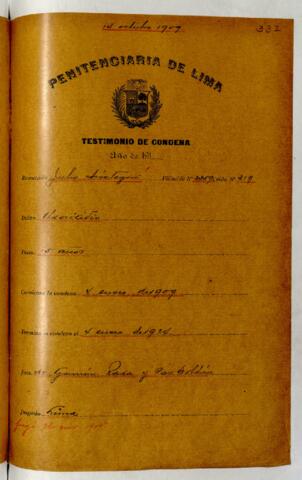 14 octubre 1909
332
PENITENCIARIA DE LIMA
TESTIMONIO DE CONDENA
Año de 191
Rematado Julio Filiación Nº celda Nº 219
Delito Homicidio
Pena 15 años
Comienza la condena 4 enero de 1909
Termina la condena el 4 enero de 1924
Juez Dr. Rada y Paz Soldán
Juzgado Lima